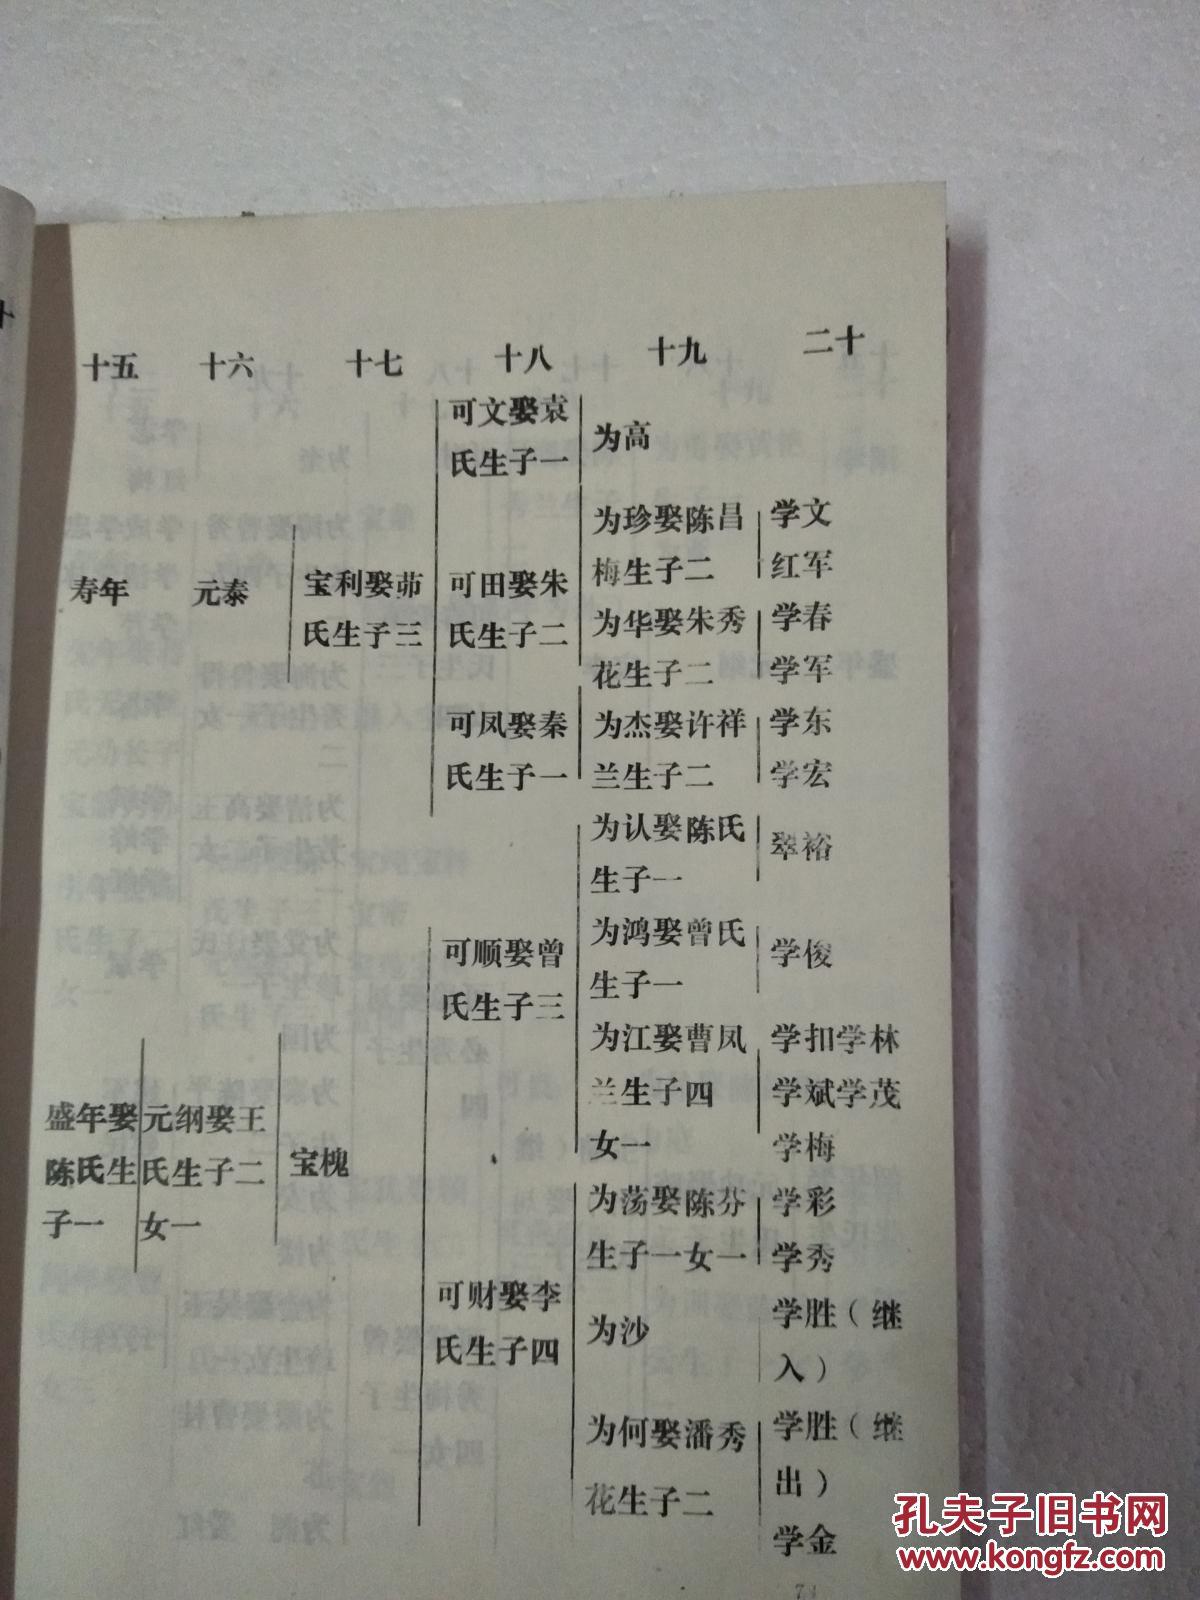 十五 十六 十七 十八 十九 二十
寿年
盛年娶
陈氏生
子一
元泰
元纲娶王
氏生子二
女一
宝利娶茆
氏生子三
宝槐
可文娶袁
氏生子一
可田娶朱
氏生子二
可凤娶秦
氏生子一
可顺娶曾
氏生子三
可财娶李
氏生子四
为高
为珍娶陈昌
梅生子二
为华娶朱秀
花生子二
为杰娶许祥
兰生子二
为认娶陈氏
生子一
为鸿娶曾氏
生子一
为江娶曹凤
兰生子四
女一
为荡娶陈芬
生子一女一
为沙
为何娶潘秀
花生子二
学文
红军
学春
学军
学东
学宏
翠裕
学俊
学扣学林
学斌学茂
学梅
学彩
学秀
学胜（继
入）
学胜（继
出）
学金
孔夫子旧书网
www.kongfz.com